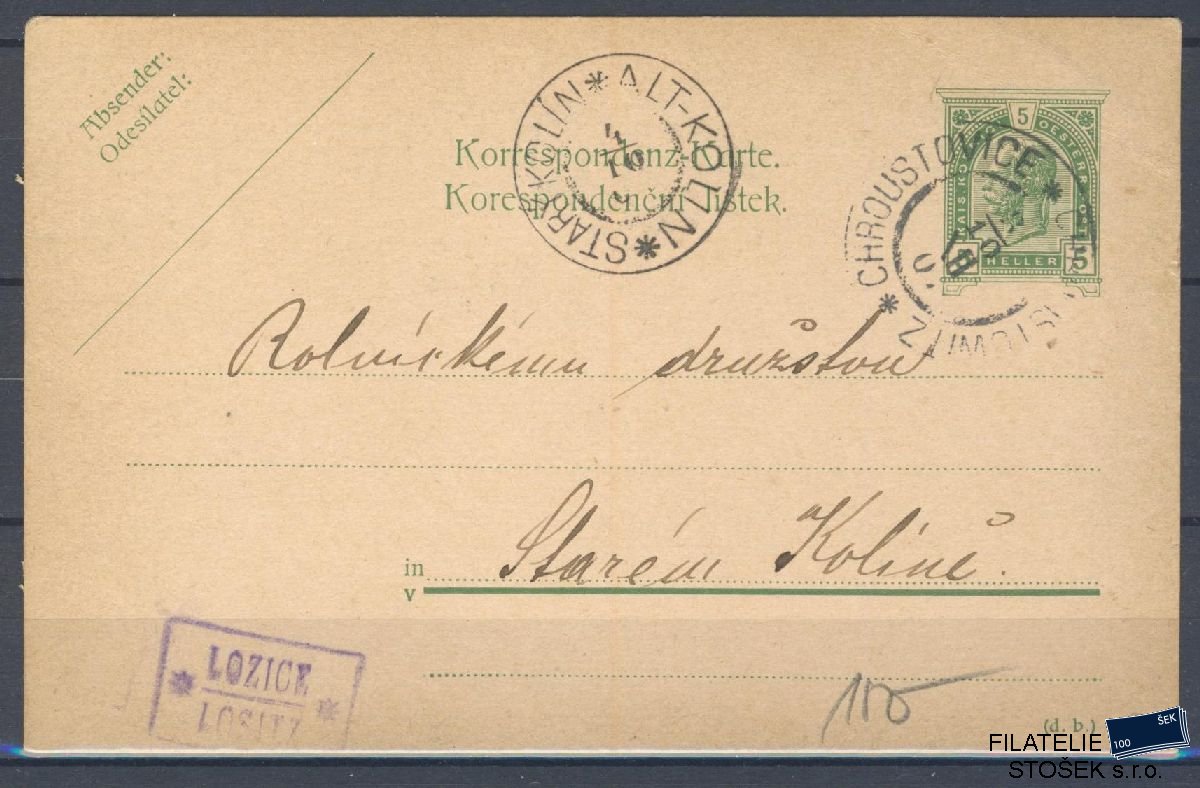 Absender:
Odesílatel:
STARÝ KOLÍN * ALT-KOLIN *
Korrespondenz-Karte.
Korespondenční lístek.
5
KAIS. KÖ OESTERR.
HELLER
5
* CHROUSTOVICE *
Rolnickému družstvu
in
v
Starém Kolíně.
* LOZICE *
100
(d. b.)
100 ŠEK
FILATELIE
STOŠEK s.r.o.